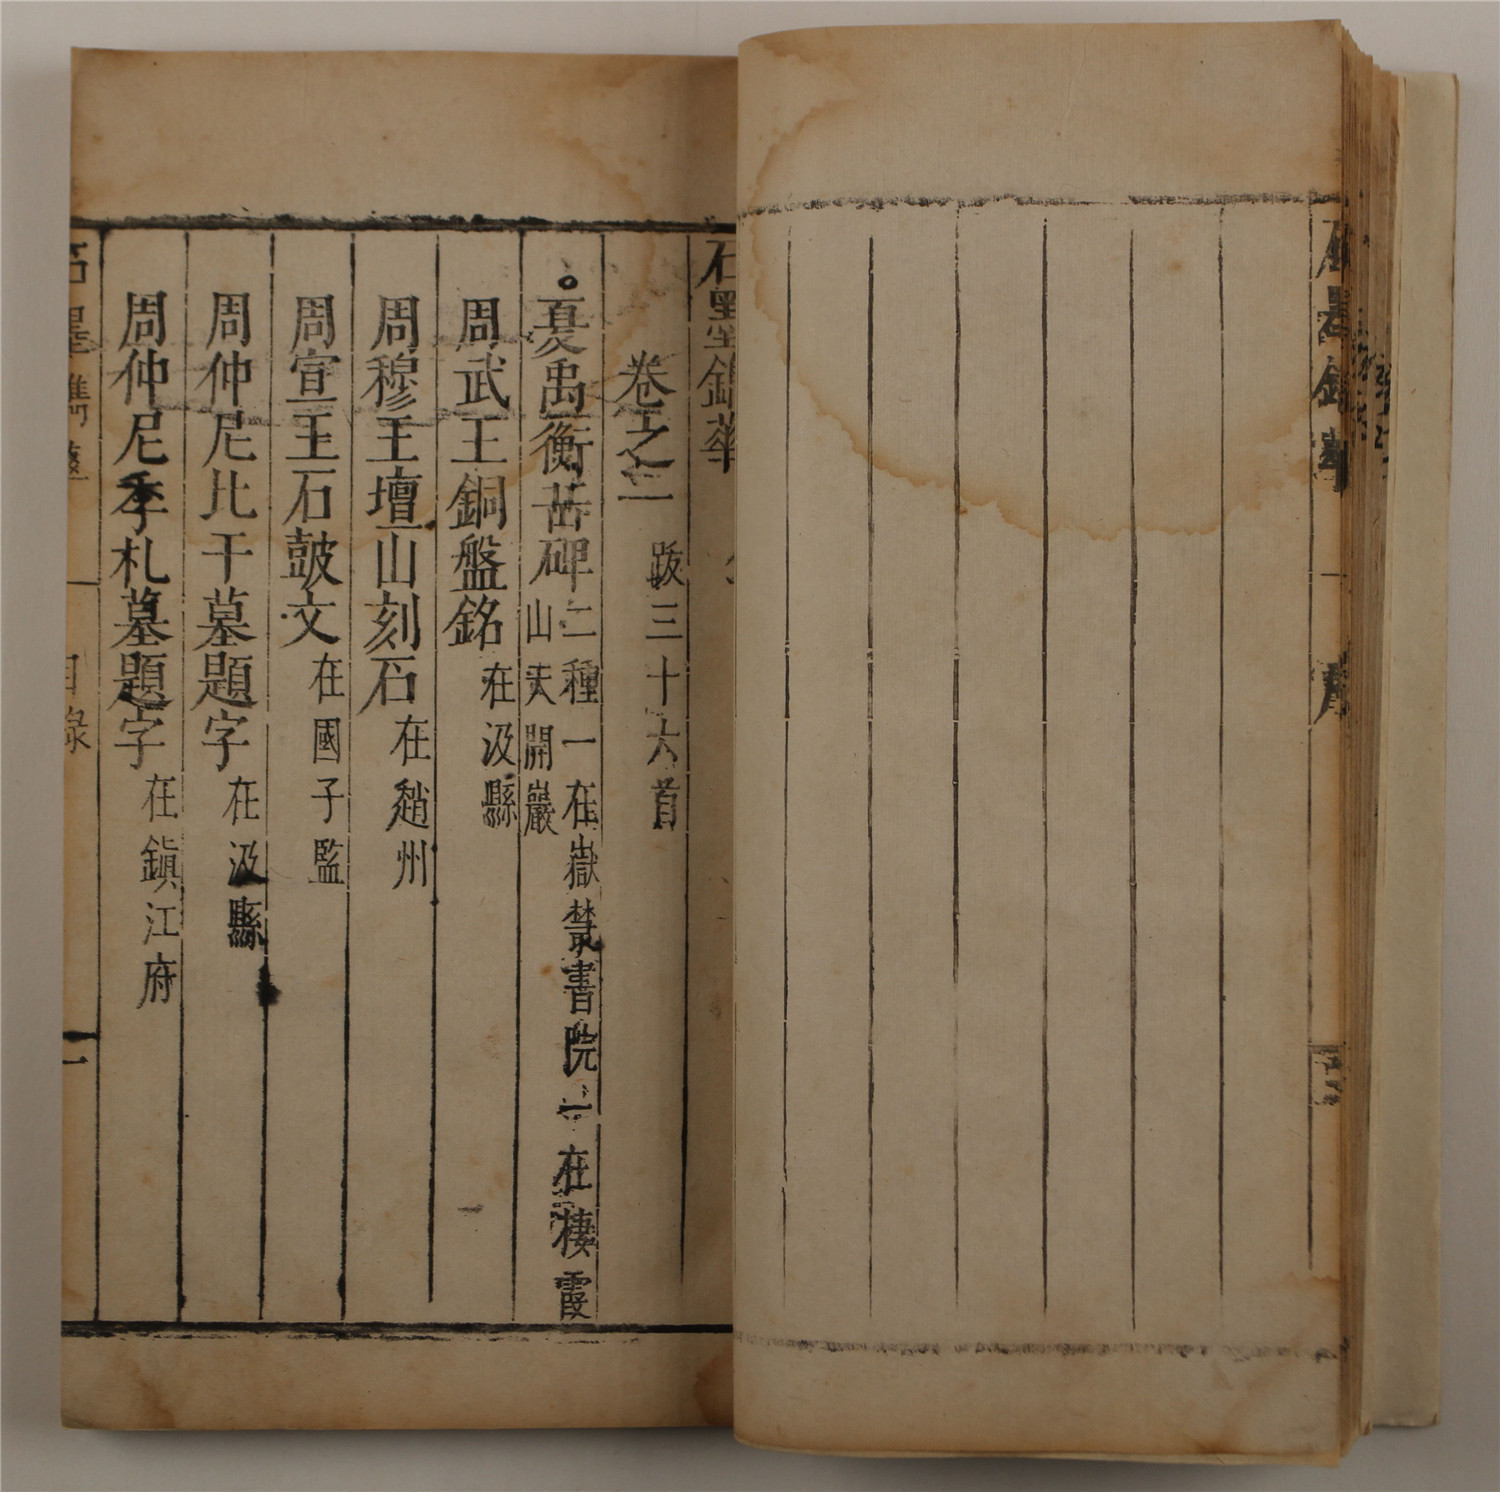 石墨鐫華
序
石墨鐫華
卷之一 跋三十六首
夏禹衡岳碑二種一在嶽叢書院一在棲霞
山天開巖
周武王銅盤銘在汲縣
周穆王壇山刻石在趙州
周宣王石鼓文在國子監
周仲尼比干墓題字在汲縣
周仲尼季札墓題字在鎮江府
石墨鐫華 目錄 一